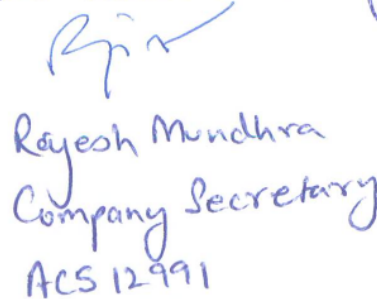 Rajesh Mundhra
Company Secretary
ACS 12991